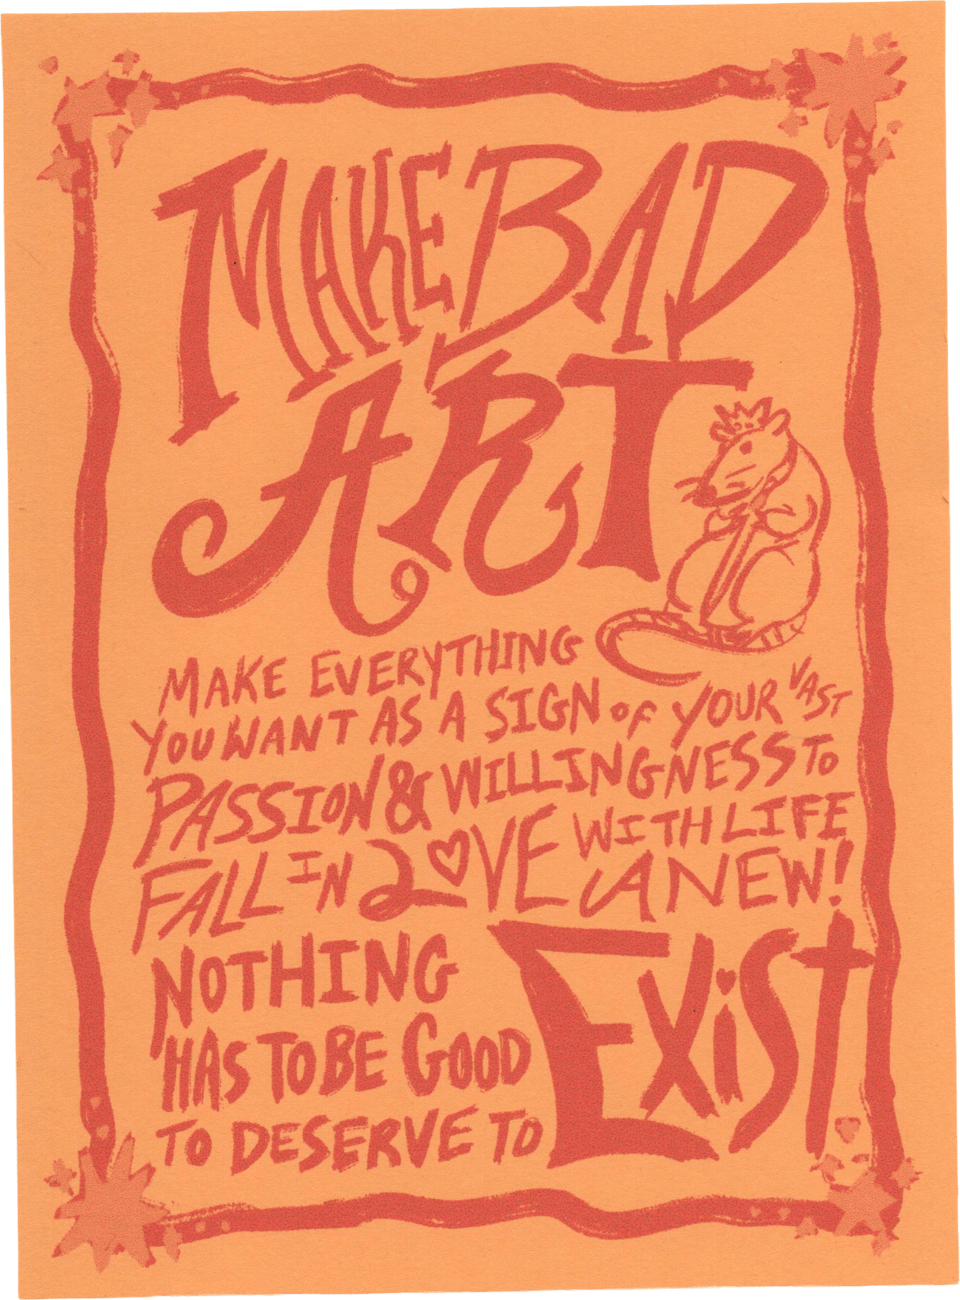 MAKE BAD
ART
MAKE EVERYTHING
YOU WANT AS A SIGN OF YOUR VAST
PASSION & WILLINGNESS TO
FALL IN LOVE WITH LIFE
ANEW!
NOTHING
HAS TO BE GOOD
TO DESERVE TO
EXiST